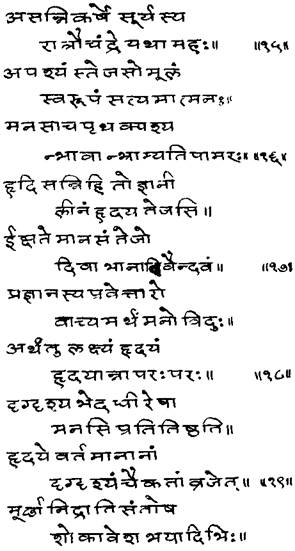 असन्निकर्षे सूर्यस्य
रात्रौचंद्रे यथा महः॥ ॥१५॥
अपश्यं स्तेजसो मूलं
स्वरूपं सत्यमात्मनः।
मनसा च पृथक्पश्य
न्भावा न्भ्राम्यति पामरः॥ ॥१६॥
हृदि सन्निहि तो ज्ञानी
लीनं हृदय तेजसि॥
ईक्षते मानसं तेजो
दिवा भाना विवैन्दवं॥ ॥१७॥
प्रज्ञानस्य प्रवेत्तारो
वाच्यमर्थं मनो विदुः॥
अर्थंतु लक्ष्यं हृदयं
हृदयान्नापरः परः॥ ॥१८॥
दृग्दृश्य भेद धीरेषा
मनसि प्रतितिष्ठति॥
हृदये वर्तमानानां
दृग्दृश्यं चैकतां व्रजेत्॥ ॥१९॥
मूर्छा निद्राति संतोष
शोकावेश भयादिभिः॥